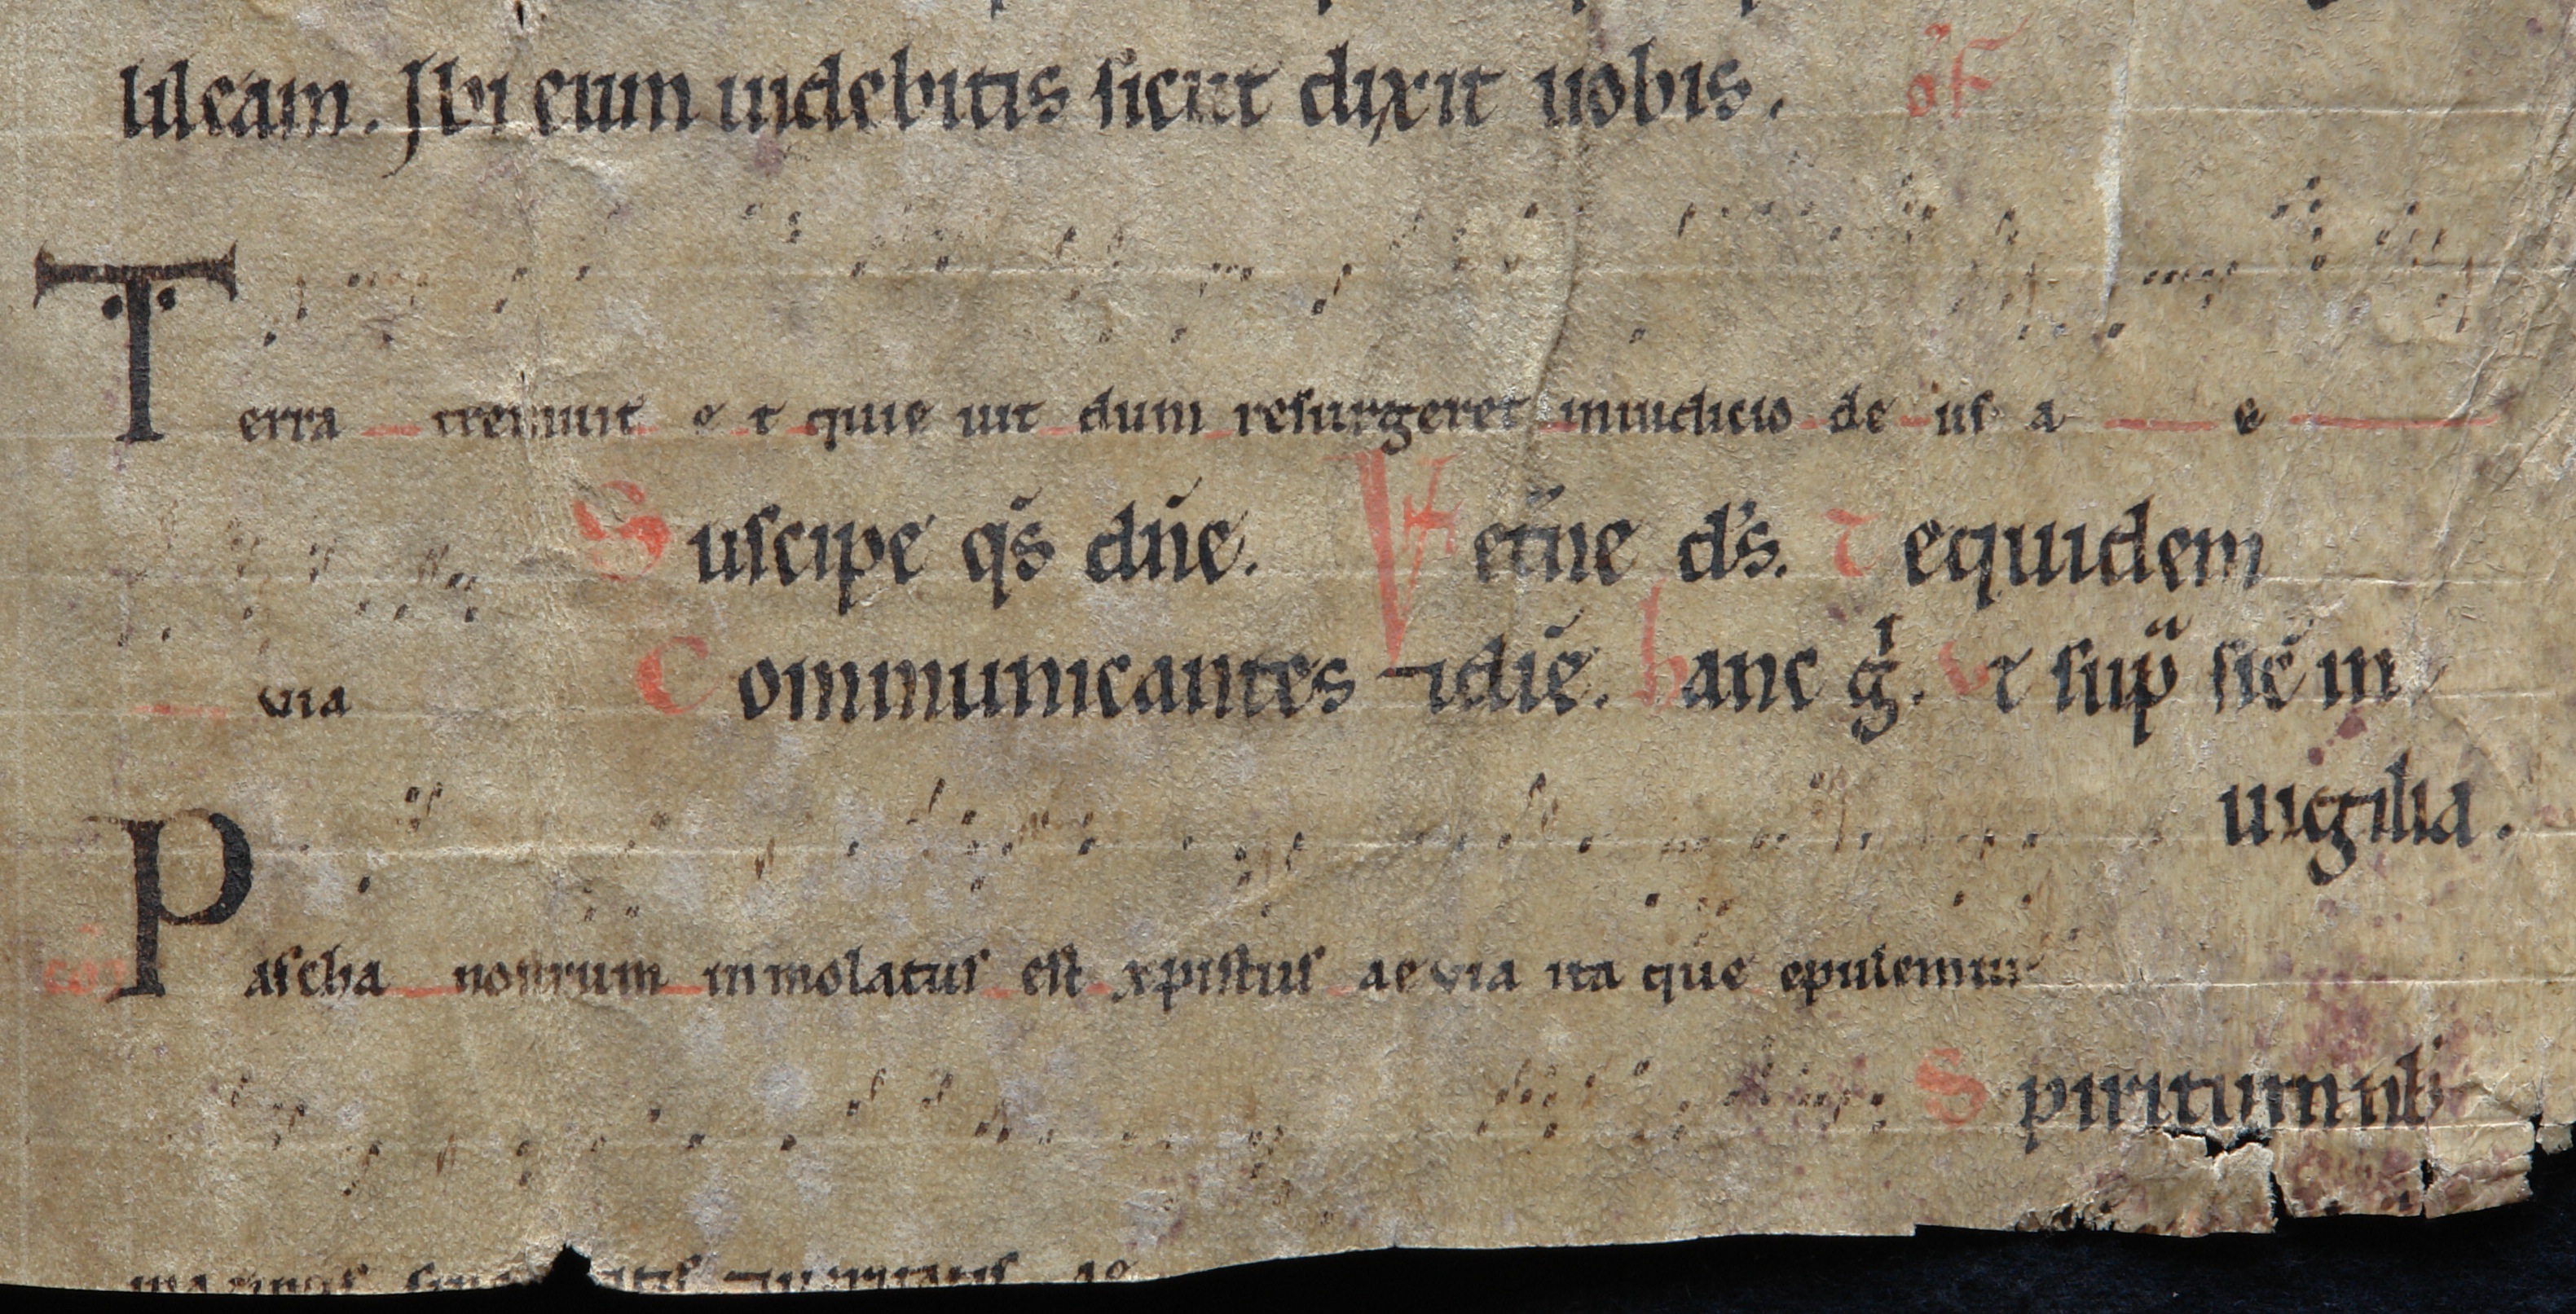 lileam. Ibi eum uidebitis sicut dixit uobis. of̄
Terra tremuit et quie uit dum resurgeret iniudicio de us a e
Suscipe q̄s dn̄e. VF et̄ne d's. Te quidem
via Communicantes ⁊ die᷃. hanc gͥ. Vt sup̄ sic̄ in
uigilia.
co᷃ Pascha nostrum inmolatus est xpistus ae via ita que epulemur
Spiritum